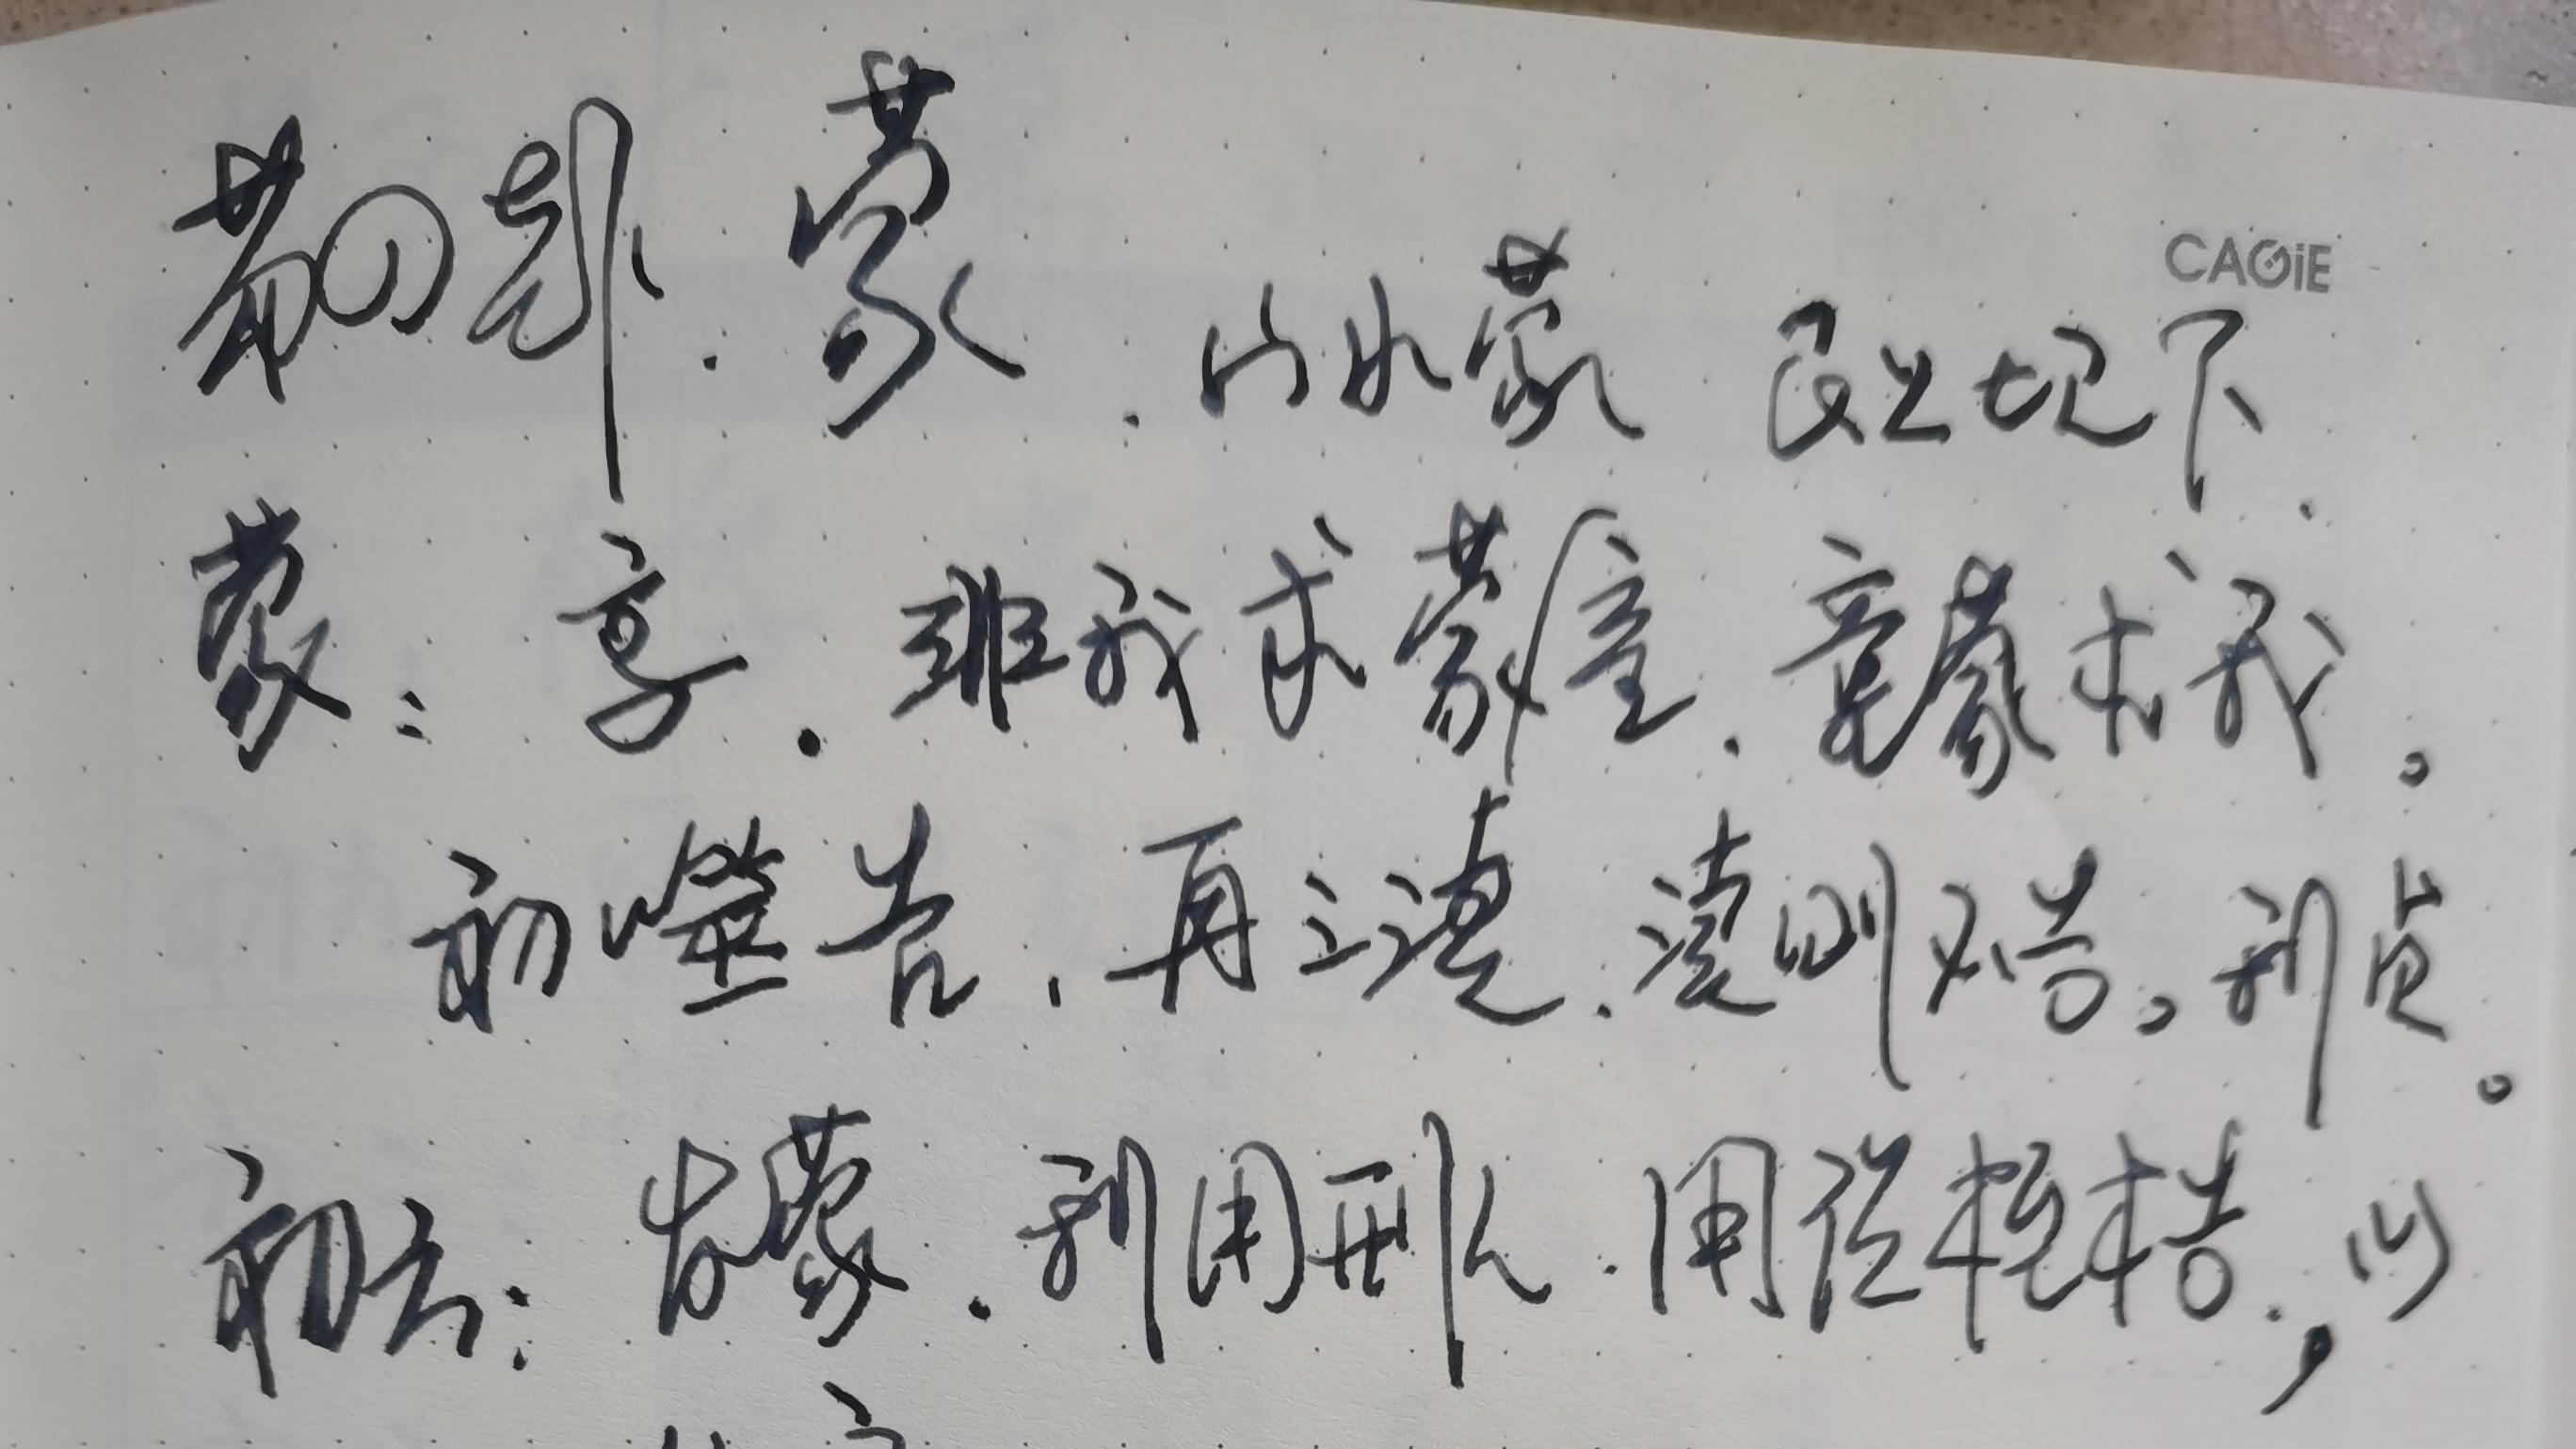 第四卦.蒙.山水蒙 艮上坎下.
CAGiE
蒙:亨.非我求蒙童、童蒙求我。
初噬告.再三渎.渎则不告。利贞。
初六:发蒙.利用刑人.用说桎梏.,以